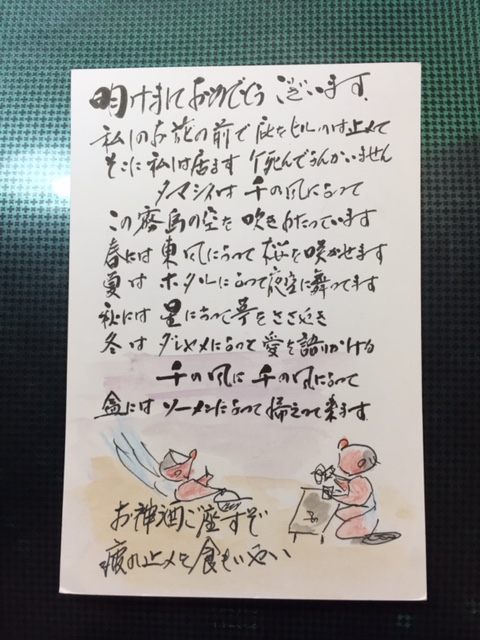 明けましておめでとうございます。
私のお墓の前で屁をヒルのは止めて
そこに私は居ます 死んでなんかいません
タマシイは 千の風になって
この霧島の空を 吹きわたっています
春には 東風になって 桜を咲かせます
夏は ホタルになって 夜空に舞ってます
秋には 星になって をささやき
冬は ダレヤメになって 愛を語りかける
千の風に 千の風になって
盆には ソーメンになって 帰えって来ます
お神酒ご座すぞ
疲れ止メを食もいやい